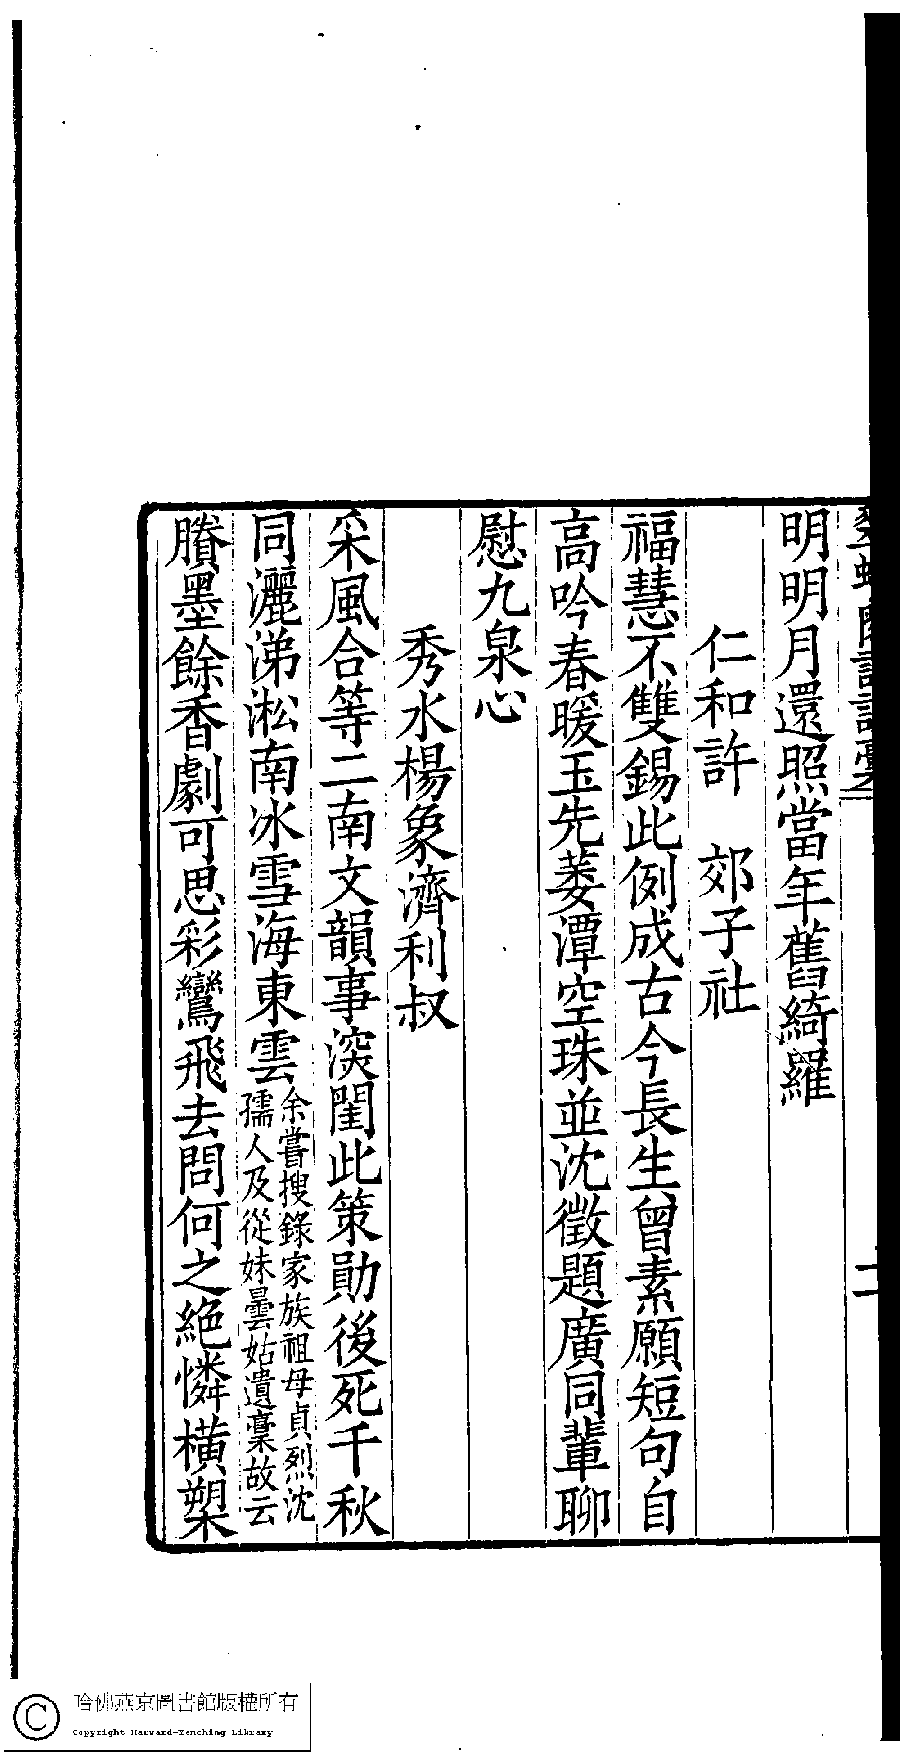 明明月還照當年舊綺羅
仁和許　郊子社
福慧不雙錫此例成古今長生曾素願短句自
高吟春暖玉先萎潭空珠並沈徵題廣同輩聊
慰九泉心
秀水楊象濟利叔
采風合等二南文韻事深閨此策勛後死千秋
同灑涕淞南冰雪海東雲
余嘗搜錄家族祖母貞烈沈
孺人及從妹曇姑遺稾故云
賸墨餘香劇可思彩鸞飛去問何之絕憐橫槊
二
哈佛燕京圖書館版權所有
Copyright Harvard-Yenching Library